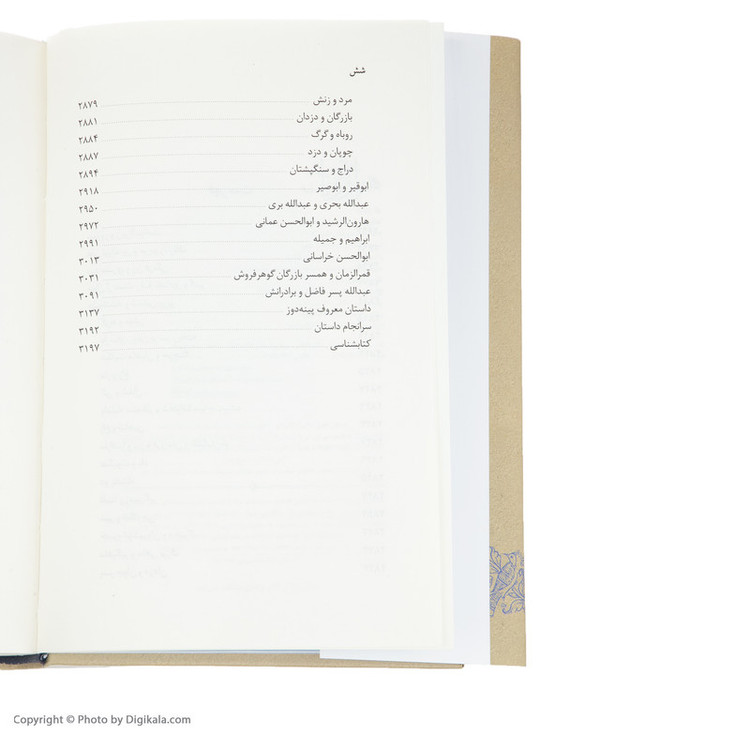 شش
مرد و زنش ۲۸۷۹
بازرگان و دزدان ۲۸۸۱
روباه و گرگ ۲۸۸۴
چوپان و دزد ۲۸۸۷
دراج و سنگپشتان ۲۸۹۴
ابوقیر و ابوصیر ۲۹۱۸
عبدالله بحری و عبدالله بری ۲۹۵۰
هارون‌الرشید و ابوالحسن عمانی ۲۹۷۲
ابراهیم و جمیله ۲۹۹۱
ابوالحسن خراسانی ۳۰۱۳
قمرالزمان و همسر بازرگان گوهرفروش ۳۰۳۱
عبدالله پسر فاضل و برادرانش ۳۰۹۱
داستان معروف پینه‌دوز ۳۱۳۷
سرانجام داستان ۳۱۹۲
کتابشناسی ۳۱۹۷
Copyright © Photo by Digikala.com